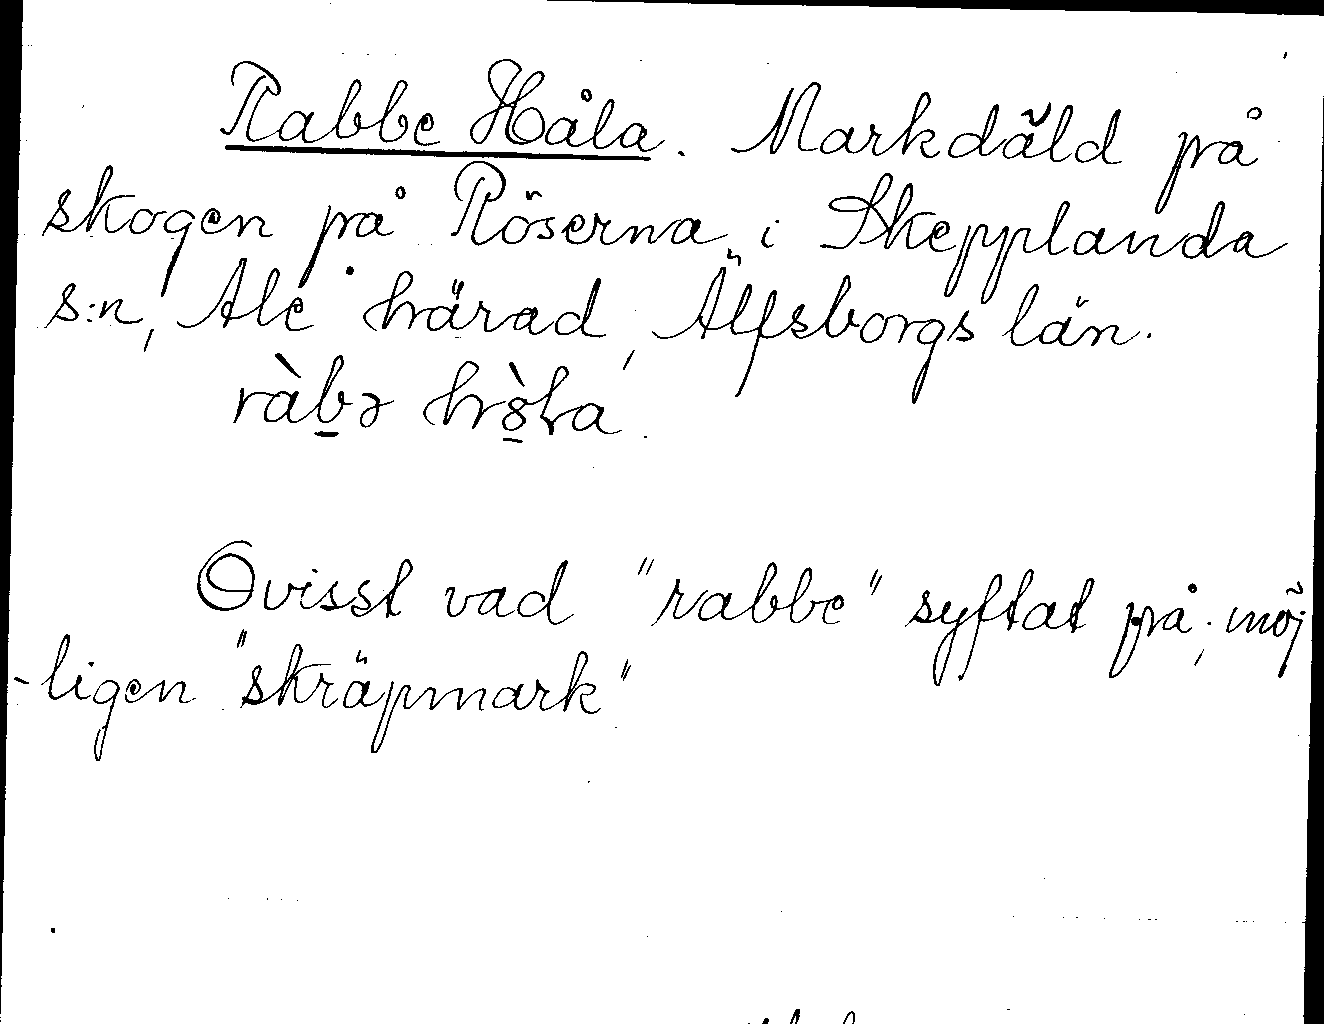 Rabbe Håla. Markdäld på
skogen på Röserna i Skepplanda
s:n, Ale härad, Älfsborgs län.
ràb̲ə hò̲ɫa.
Ovisst vad "rabbe" syftat på; möj
-ligen "skräpmark"